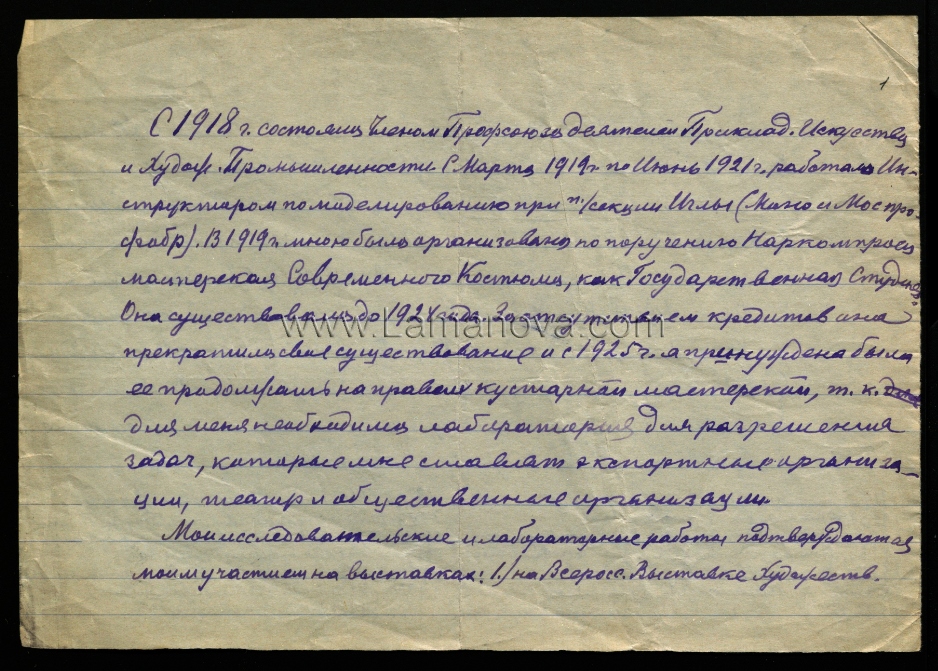 1
С 1918 г. состояла Членом Профсоюза деятелей Приклад. Искусства
и Худож. Промышленности С Марта 1919 г. по Июнь 1921 г. работала Ин-
структором по моделированию при п./секции Иглы (Моно и Мос про-
фобр). В 1919 г. мною была организована по поручению Наркомпроса
мастерская Современного Костюма, как Государственная Студия.
Она существовала до 1924 года. За отсутствием кредитов она
www.Lamanova.com
прекратила свое существование и с 1925 г. я принуждена была
ее продолжать на правах кустарной мастерской, т. к.
для меня необходима лаборатория для разрешения
задач, которые мне ставят экспортные организа-
ции, театр и общественные организации.
Мои исследовательские и лабораторные работы подтверждаются
моим участием на выставках: 1.) на Всеросс. Выставке Художеств.